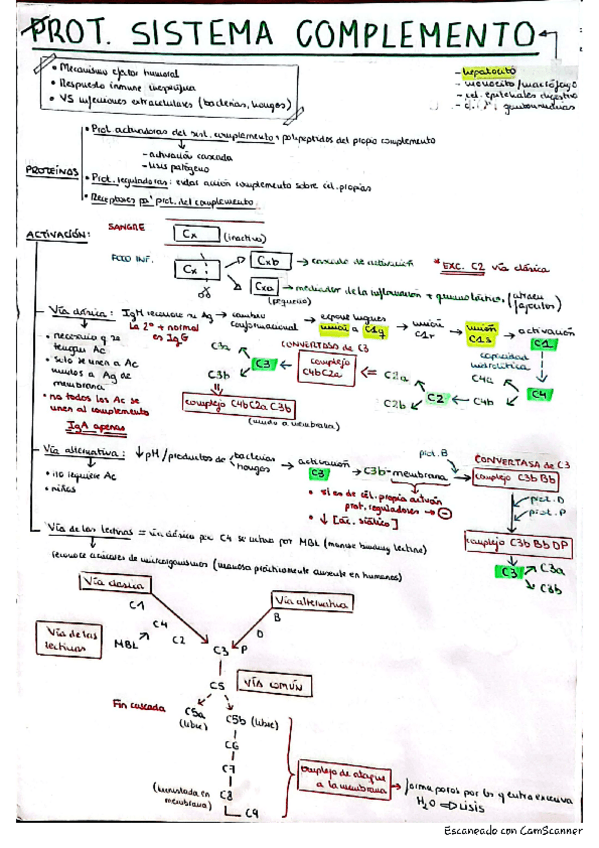 PROT. SISTEMA COMPLEMENTO
• Mecanismo efector humoral
• Respuesta inmune inespecífica
• VS infecciones extracelulares (bacterias, hongos)
- hepatocito
- monocito/macrófago
- cel. epiteliales digestivo
PROTEÍNAS
• Prot. activadoras del sist. complemento: polipéptidos del propio complemento
- activación cascada
- lisis patógeno
• Prot. reguladoras: evitar acción complemento sobre cél. propias
• Receptores pa' prot. del complemento.
ACTIVACIÓN:
SANGRE
Cx (inactivo)
FOCO INF.
Cx
Cxb → cascada de activación
* EXC. C2 vía clásica
Cxa → mediador de la inflamación +
(pequeño)
- Vía clásica: IgM reconoce su Ag → cambio conformacional → expone lugares unión a C1q → unión C1r → unión C1s → activación C1
La 2ª + normal es IgG
• necesario q se tengan Ac
• solo se unen a Ac unidos a Ag de membrana
• no todos los Ac se unen al complemento
IgA apenas
capacidad hidrolítica
C4
C4a
C4b
C2
C2a
C2b
CONVERTASA DE C3
complejo C4bC2a
C3
C3a
C3b
complejo C4bC2a C3b
(unido a membrana)
- Vía alternativa: ↓ pH / productos de bacterias hongos → activación C3 → C3b - membrana
• no requiere Ac
• niños
• si es de cél. propia actúan prot. reguladoras → ⊖
• ↓ [ác. siálico]
prot. B
CONVERTASA DE C3
complejo C3b Bb
prot. D
prot. P
complejo C3b Bb DP
C3
C3a
C3b
- Vía de las lectinas = vía clásica pero C4 se activa por MBL (manose binding lectine)
reconoce azúcares de microorganismos (manosa prácticamente ausente en humanos)
Vía clásica
C1
C4
C2
Vía alternativa
B
D
P
Vía de las lectinas
MBL
C3
C5
VÍA COMÚN
Fin cascada
C5a (libre)
C5b (libre)
C6
C7
(incrustada en membrana) C8
C9
complejo de ataque a la membrana → forma poros por los q entra excesiva H₂O ⇒ Lisis
Escaneado con CamScanner